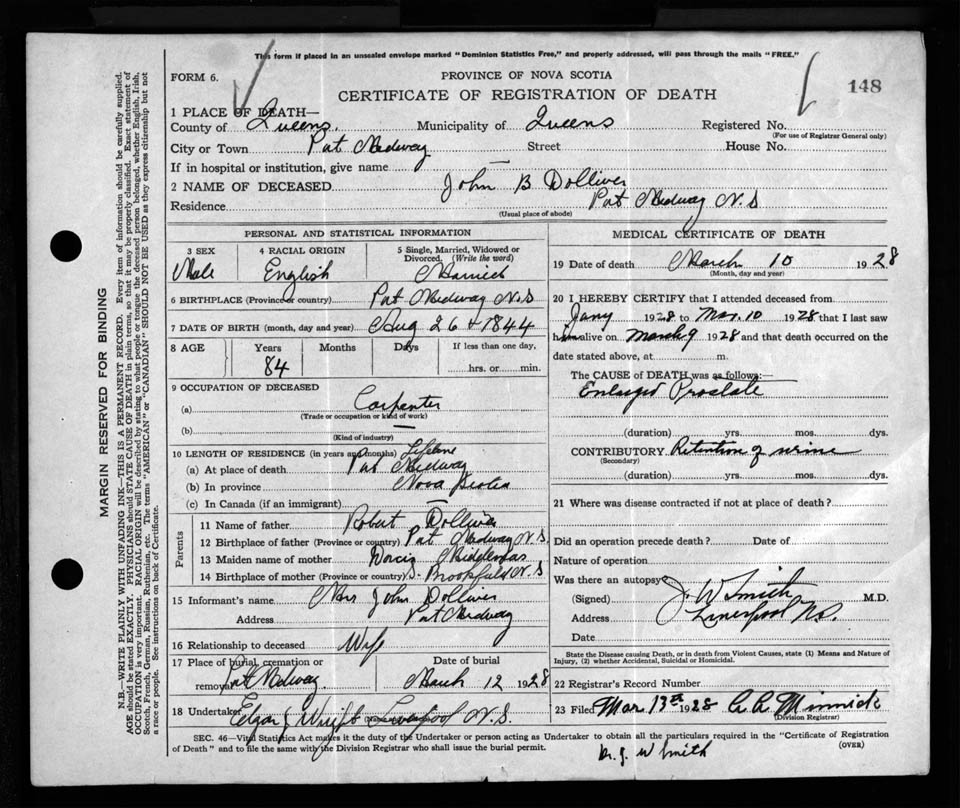 This form if placed in an unsealed envelope marked "Dominion Statistics Free," and properly addressed, will pass through the mails "FREE."
FORM 6.
PROVINCE OF NOVA SCOTIA
148
CERTIFICATE OF REGISTRATION OF DEATH
1 PLACE OF DEATH—
County of Queens Municipality of Queens Registered No.
(For use of Registrar General only)
City or Town Pat Medway Street House No.
If in hospital or institution, give name —
2 NAME OF DECEASED John B Dolliver
Residence Pat Medway N.S
(Usual place of abode)
PERSONAL AND STATISTICAL INFORMATION
3 SEX 4 RACIAL ORIGIN 5 Single, Married, Widowed or Divorced. (Write the word)
Male English Married
6 BIRTHPLACE (Province or country) Pat Medway N.S
7 DATE OF BIRTH (month, day and year) Aug 26 1844
8 AGE Years Months Days If less than one day,
84 hrs. or min.
9 OCCUPATION OF DECEASED
(a) Carpenter
(Trade or occupation or kind of work)
(b) —
(Kind of industry)
10 LENGTH OF RESIDENCE (in years and months) Lifetime
(a) At place of death Pat Medway
(b) In province Nova Scotia
(c) In Canada (if an immigrant)
Parents
11 Name of father Robert Dolliver
12 Birthplace of father (Province or country) Pat Medway N.S
13 Maiden name of mother
14 Birthplace of mother (Province or country) Brookfield N S
15 Informant's name Mrs John Dolliver
Address Pat Medway
16 Relationship to deceased Wife
17 Place of burial, cremation or removal Pt Medway Date of burial March 12 1928
18 Undertaker Edgar J Wright Liverpool N.S.
MEDICAL CERTIFICATE OF DEATH
19 Date of death March 10 1928
(Month, day and year)
20 I HEREBY CERTIFY that I attended deceased from
Jany 1928 to Mar. 10 1928 that I last saw
him alive on March 9 1928 and that death occurred on the
date stated above, at m.
The CAUSE of DEATH was as follows:—
Enlarged Prostate
(duration) yrs. mos. dys.
CONTRIBUTORY Retention of urine
(Secondary)
(duration) yrs. mos. dys.
21 Where was disease contracted if not at place of death?
Did an operation precede death? Date of
Nature of operation
Was there an autopsy
(Signed) J. W Smith M.D.
Address Liverpool N.S.
Date
State the Disease causing Death, or in death from Violent Causes, state (1) Means and Nature of
Injury, (2) whether Accidental, Suicidal or Homicidal.
22 Registrar's Record Number
23 Filed Mar 13th 1928 Minnick
(Division Registrar)
SEC. 46—Vital Statistics Act makes it the duty of the Undertaker or person acting as Undertaker to obtain all the particulars required in the "Certificate of Registration
of Death" and to file the same with the Division Registrar who shall issue the burial permit. (OVER)
Dr. J. W Smith
MARGIN RESERVED FOR BINDING
N.B.—WRITE PLAINLY WITH UNFADING INK—THIS IS A PERMANENT RECORD. Every item of information should be carefully supplied.
AGE should be stated EXACTLY. PHYSICIANS should STATE CAUSE OF DEATH in plain terms, so that it may be properly classified. Exact statement of
OCCUPATION is very important. RACIAL ORIGIN will be described by stating to what people or tongue the deceased person belonged, whether English, Irish,
Scotch, French, German, Russian, Ruthenian, etc. The terms "AMERICAN" or "CANADIAN" SHOULD NOT BE USED as they express citizenship but not
a race or people. See instructions on back of Certificate.